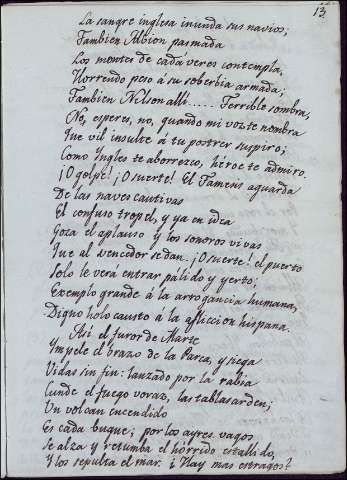 13.
La sangre inglesa inunda sus navios;
Tambien Albion pasmada
Los montes de cadáveres contempla,
Horrendo peso á su soberbia armada;
Tambien Nelson allí..... Terrible sombra,
No, esperes, no, quando mi voz te nombra
Que vil insulte á tu postrer suspiro;
Como Ingles te aborrezco, héroe te admiro.
¡O golpe! ¡O suerte! El Tamesis aguarda
De las naves cautivas
El confuso tropel, y ya en idea
Goza el aplauso y los sonoros vivas
Que al vencedor se dan. ¡O suerte! el puerto
Solo le verá entrar pálido y yerto;
Exemplo grande á la arrogancia humana,
Digno holocausto á la afliccion hispana.
Asi el furor de Marte
Impele el brazo de la Parca, y siega
Vidas sin fin: lanzado por la rabia
Cunde el fuego voraz, las tablas arden;
Un volcan encendido
Es cada buque; por los ayres vagos
Se alza y retumba el hórrido estallido,
Y los sepulta el mar. ¿Hay mas estragos?